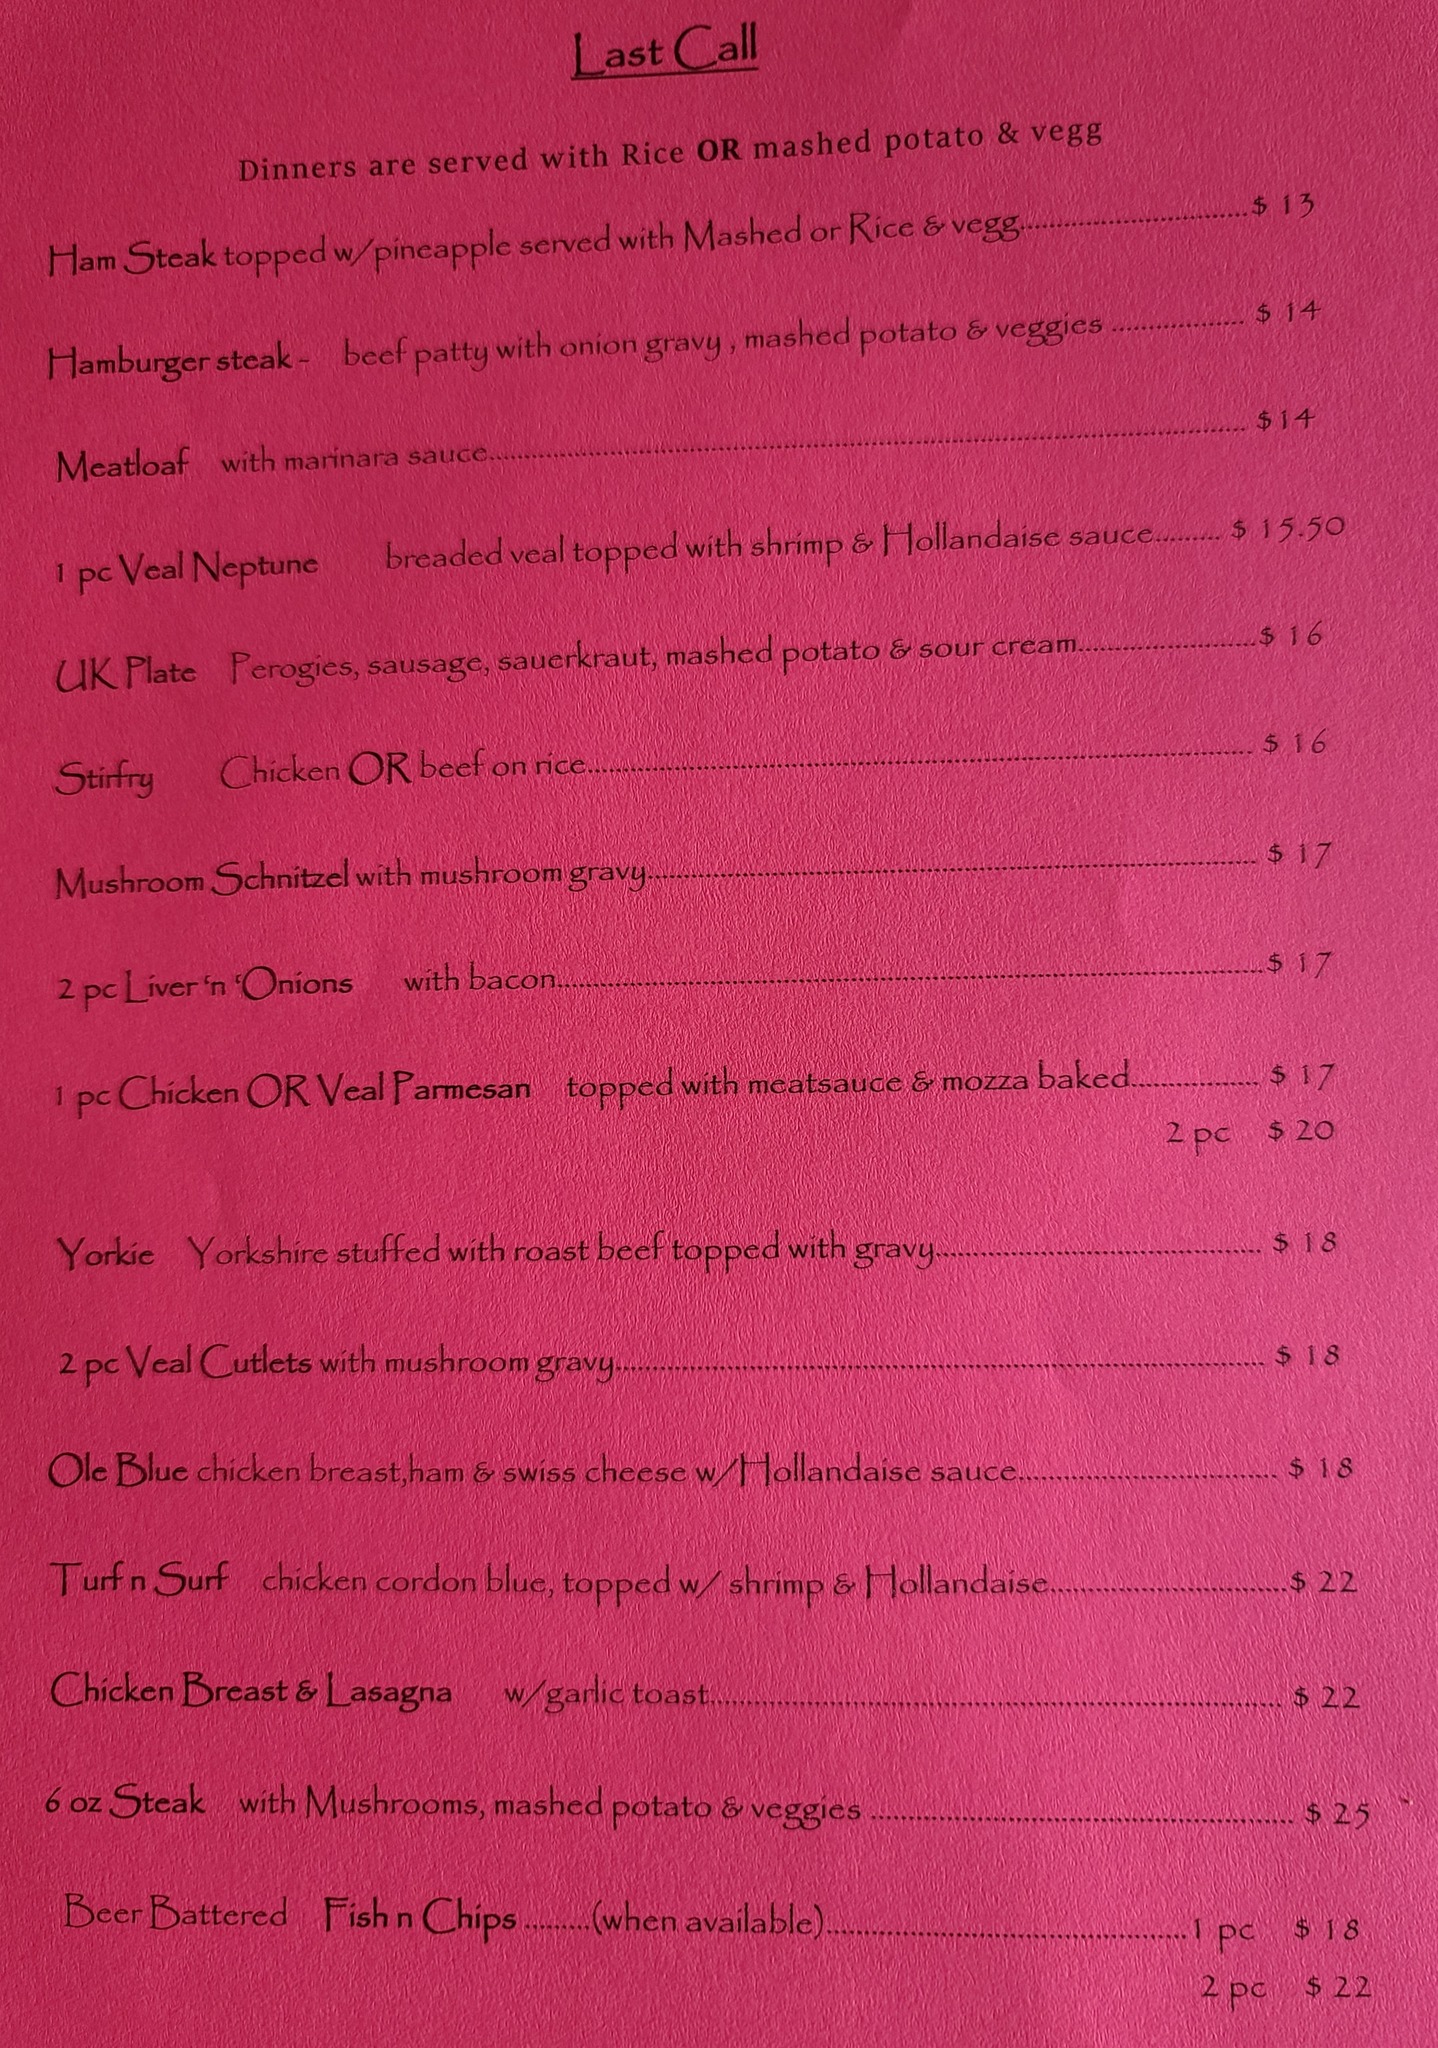 Last Call
Dinners are served with Rice OR mashed potato & vegg
Ham Steak topped w/pineapple served with Mashed or Rice & vegg..............................$ 13
Hamburger steak - beef patty with onion gravy , mashed potato & veggies .................. $ 14
Meatloaf with marinara sauce.......................................................................................... $14
1 pc Veal Neptune breaded veal topped with shrimp & Hollandaise sauce......... $ 15.50
UK Plate Perogies, sausage, sauerkraut, mashed potato & sour cream.........................$ 16
Stirfry Chicken OR beef on rice.......................................................................................... $ 16
Mushroom Schnitzel with mushroom gravy................................................................................ $ 17
2 pc Liver ‘n ‘Onions with bacon..........................................................................................$ 17
1 pc Chicken OR Veal Parmesan topped with meatsauce & mozza baked.................. $ 17
2 pc $ 20
Yorkie Yorkshire stuffed with roast beef topped with gravy............................................. $ 18
2 pc Veal Cutlets with mushroom gravy.................................................................................. $ 18
Ole Blue chicken breast,ham & swiss cheese w/Hollandaise sauce.................................... $ 18
Turf n Surf chicken cordon blue, topped w/ shrimp & Hollandaise.................................$ 22
Chicken Breast & Lasagna w/garlic toast................................................................................ $ 22
6 oz Steak with Mushrooms, mashed potato & veggies ............................................................ $ 25
Beer Battered Fish n Chips .........(when available)..................................................1 pc $ 18
2 pc $ 22